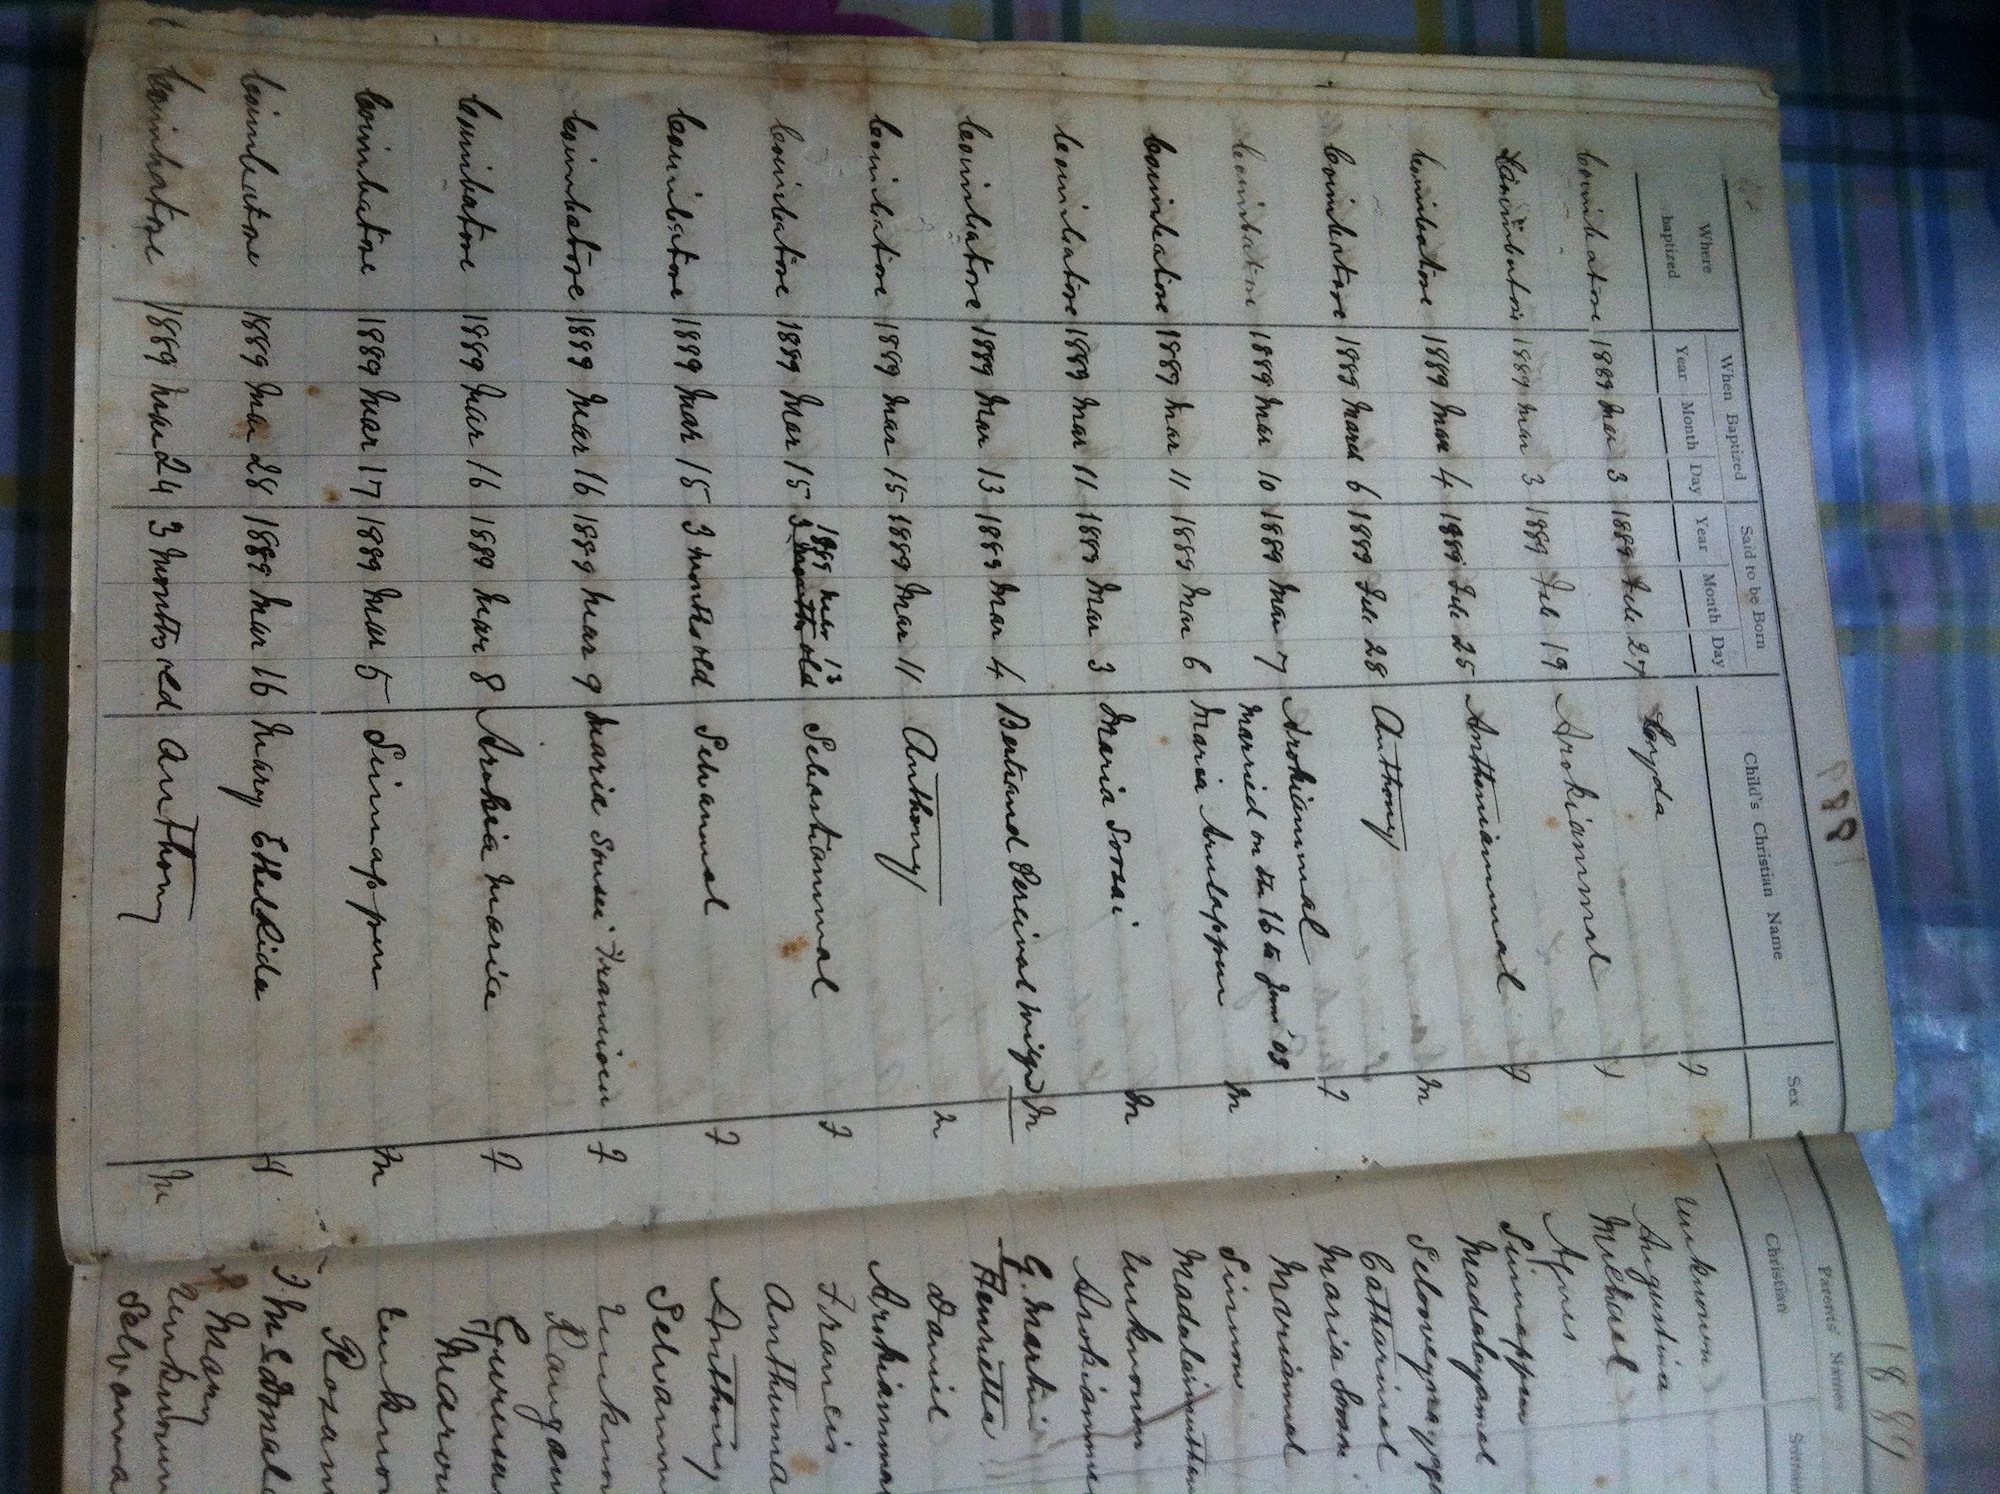 1889
Where baptized | When Baptized Year Month Day | Said to be Born Year Month Day | Child's Christian Name | Sex
Coimbatore 1889 Mar 3 1889 Feb 27 F
Coimbatore 1889 Mar 3 1889 Feb 19 Arokiammal F
Coimbatore 1889 Mar 4 1889 Feb 25 Anthoniammal F
Coimbatore 1889 March 6 1889 Feb 28 Anthony M
Coimbatore 1889 Mar 10 1889 Mar 7 Arokiammal F
Married on the 16th June '09
Coimbatore 1889 Mar 11 1889 Mar 6 Maria Arulappen M
Coimbatore 1889 Mar 11 1889 Mar 3 Maria Soosai M
Coimbatore 1889 Mar 13 1889 Mar 4 Bertrand Percival M
Coimbatore 1889 Mar 15 1889 Mar 11 Anthony M
1889 Mar 13
Coimbatore 1889 Mar 15 3 months old Sebastiammal F
Coimbatore 1889 Mar 15 3 months old Selvammal F
Coimbatore 1889 Mar 16 1889 Mar 9 Maria Susei F
Coimbatore 1889 Mar 16 1889 Mar 8 Arokia Marie F
Coimbatore 1889 Mar 17 1889 Mar 5 Sinnappen M
Coimbatore 1889 Mar 28 1889 Mar 16 Mary Etheldrida F
Coimbatore 1889 Mar 24 3 months old Anthony M
1889
Parents' Names
Christian
Unknown
Augustina
Michael
Agnes
Sinnappen
Madalayamal
Catharinal
Maria Soosai
Mariamal
Sinnow
Madalaimuthu
Unknown
Arokiamme
G. Martin
Henrietta
Daniel
Arokiamma
Francis
Anthuma
Anthony
Selvamm
Unkn
Rangan
Gurusu
Marou
Unkno
Rosam
Mary
Unknown
Selvamma